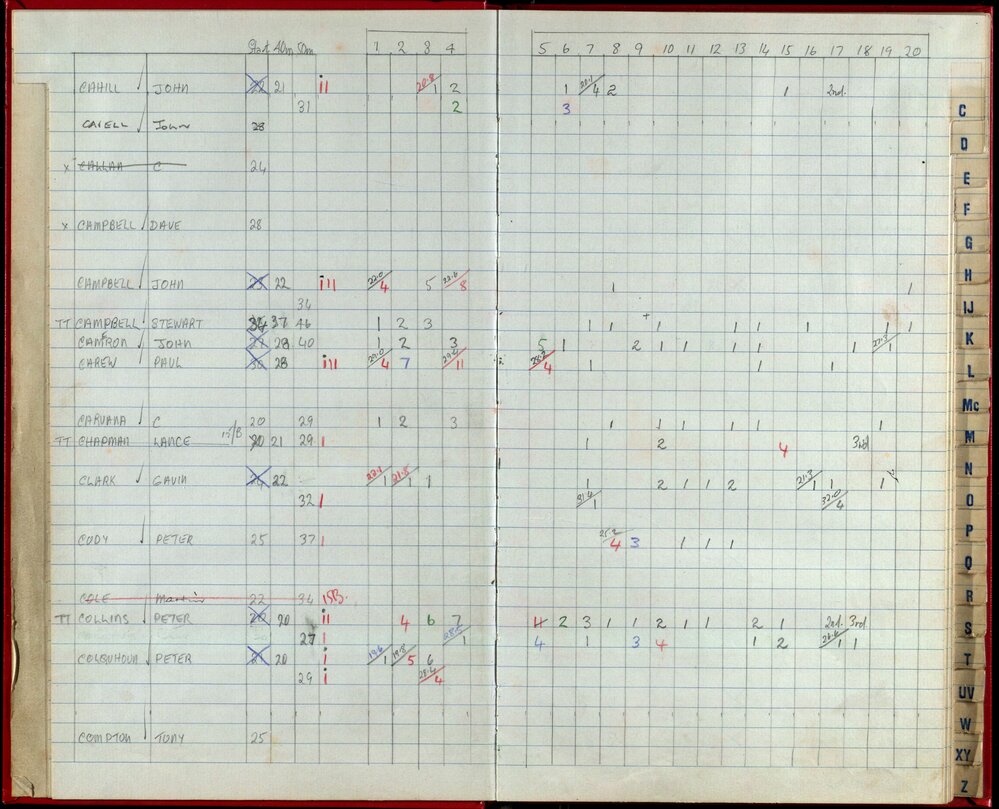 Start 40m 50m 1 2 3 4 5 6 7 8 9 10 11 12 13 14 15 16 17 18 19 20
CAHILL JOHN 22 21 ii 20.8 1 2 1 20.1 4 2 1 2nd.
31 2 3
CAVELL JOHN 28
x CALLAN C 24
x CAMPBELL DAVE 28
CAMPBELL JOHN 23 22 iii 22.0 4 5 22.6 8 1 1
34
TT CAMPBELL STEWART 37 46 1 2 3 1 1 + 1 1 1 1 1 1
CAMERON JOHN 28 40 1 2 3 5 1 2 1 1 1 1 1 22.3 1
CAREW PAUL 30 28 iii 29.0 4 7 29.0 11 28.2 4 1 1 1
CARUANA C 20 29 1 2 3 1 1 1 1 1 1
TT CHAPMAN LANCE 15/B 20 21 29 1 1 2 4 3rd
CLARK GAVIN 22 22.1 1 21.5 1 1 1 2 1 1 2 21.3 1 1 1
32 1 31.4 1 32.0 4
CODY PETER 25 37 1 25.2 4 3 1 1 1
COLE Martin 22 34 15B.
TT COLLINS PETER 20 20 ii 4 6 7 4 2 3 1 1 2 1 1 2 1 2nd. 3rd.
27 1 1 4 1 3 4 1 2 26.6 1 1
COLQUHOUN PETER 21 20 i 19.6 1 19.8 5 6
29 i 28.4 4
COMPTON TONY 25
C
D
E
F
G
H
IJ
K
L
Mc
M
N
O
P
Q
R
S
T
UV
W
XY
Z